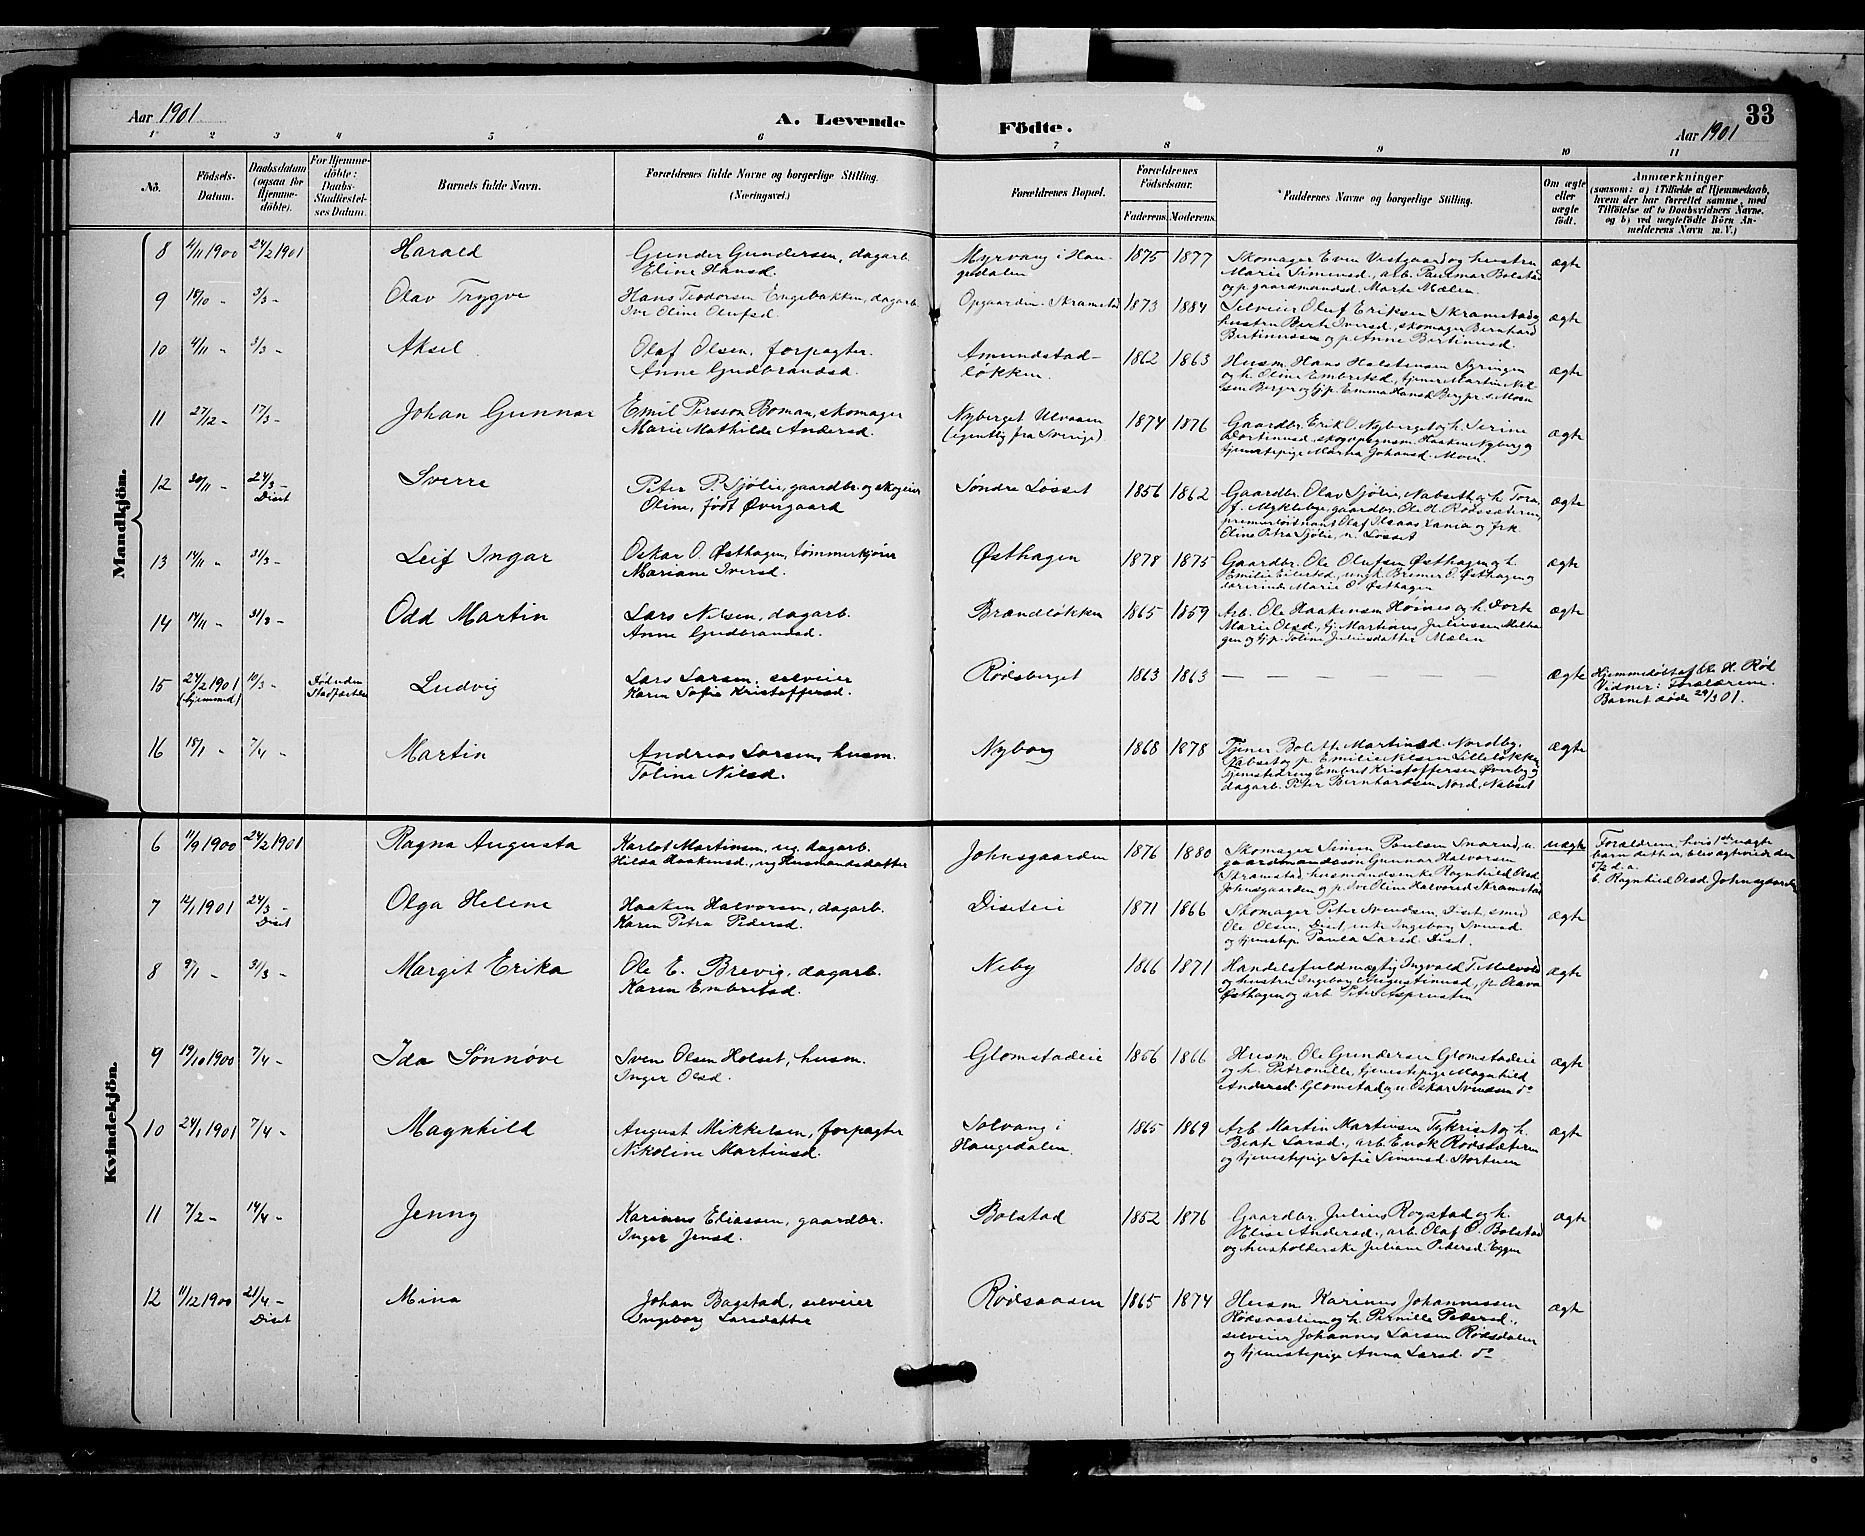 Aar 1901
A. Levende Födte.
33
Aar 1901
1 2 3 4 5 6 7 8 9 10 11
No.
Födsels-Datum.
Daabsdatum (ogsaa for Hjemmedöbte).
For Hjemmedöbte: Daabs-Stadfæstelses Datum.
Barnets fulde Navn.
Forældrenes fulde Navne og borgerlige Stilling. (Næringsvei.)
Forældrenes Bopæl.
Forældrenes Födselsaar.
Faderens. Moderens.
Faddernes Navne og borgerlige Stilling.
Om ægte eller uægte födt.
Anmærkninger
(saasom: a) i Tilfælde af Hjemmedaab, hvem der har forrettet samme, med Tilföielse af to Daabsvidners Navne, og b) ved uægtefödte Börn Anmelderens Navn m. V.)
Mandkjön.
8 4/11 1900 24/2 1901 Harald
Gunder Gundersen, dagarb.
Eline Hansd.
Myrvang i Haugedalen 1875 1877
Skomager Even Vestgaard og hustru
Marie Simensd., arb. Paulmar Bolstad
og p. gaardmandsd. Marte Mælen.
ægte
9 18/10 - 3/3 - Olav Trygve
Hans Teodorsen Engebakken, dagarb.
Ive Oline Olufsd.
Opgaarden Skramstad 1873 1884
Selveier Oluf Eriksen Skramstad og
hustru Berte Iversd., skomager Bernhard
Bertinussen og p. Anne Bertinusd.
ægte
10 4/11 - 3/3 - Aksel
Olaf Olsen, forpagter.
Anne Gudbrandsd.
Amundstad-løkken. 1862 1863
Husm. Hans Halstensen Syringen
og h. Oline Embretsd., tjener Martin Nilsen Berger og tj.p. Emma Hansd. Berg pr. Moen
ægte
11 27/12 - 17/3 - Johan Gunnar
Emil Persson Boman, skomager
Marie Mathilde Andersd.
Nyberget Ulvaaen
(egentlig fra Sverige). 1874 1876
Gaardbr. Erik O. Nyberget og h. Serine
Dortinusd., skogvogtersm. Haaken Nyberg og
tjenestepige Marna Johansd. Moen.
ægte
12 30/11 - 24/3 - Diset Sverre
Peter P. Sjølie, gaardbr. og skogeier
Oline, født Øvergaard
Søndre Løsset 1856 1862
Gaardbr. Olav Sjølie, Nabset og h. Tora
f. Myklebye, gaardbr. Ole H. Rødsæteren,
premierløitnant Olaf Ilsaas Zania og frk.
Oline Petra Sjølie, n. Løsset
ægte
13 14/11 - 31/3 - Leif Ingar
Oskar O. Østhagen, tømmerkjører
Mariane Iversd.
Østhagen 1878 1875
Gaardbr. Ole Olufsen Østhagen og h.
Emilie Eilertsd., ungk. Bremer O. Østhagen og
lærerinde Marie O. Østhagen
ægte
14 14/11 - 31/3 - Odd Martin
Lars Nilsen, dagarb.
Anne Gudbrandsd.
Brandløkken 1865 1859
Arb. Ole Haakensen Høines og h. Dorte
Marie Olsd., tj. Martinus Juliussen Melhagen og tj.p. Toline Juliusdatter Mælen
ægte
15 24/2 1901 (hjemmed) 10/3 - Død uden Stadfæstelse Ludvig
Lars Larsen, selveier
Karen Sofie Kristoffersd.
Rødsberget 1863 1863
— — — — — —
ægte
Hjemmedøbt af Ole H. Rød
Vidner: Forældrene.
Barnet døde 29/3 01.
16 18/1 - 7/4 - Martin
Andreas Larsen, husm.
Toline Nilsd.
Nyborg 1868 1878
Tjener Bolette Martinsd. Nordby,
Nabset og p. Emilie Nilsen Lilleløkken,
tjenestedreng Embret Kristoffersen Øverby og
dagarb. Peter Bernhardsen Nord. Nabset
ægte
Kvindekjön.
6 11/9 1900 24/2 1901 Ragna Augusta
Karlot Martinsen, ug. dagarb.
Hilda Haakensd., ug. Husmandsdatter
Johnsgaarden 1876 1880
Skomager Simen Paulsen Snarud, u.
gaardmandssøn Gunnar Halvorsen
Skramstad, husmandsenke Ragnhild Olsd.
Johnsgaarden og p. Ive Oline Halvorsd. Skramstad
uægte
Forældrene, hvis 1ste uægte
barn dette er, blev ægteviede den
5/2 d.a.
b. Ragnhild Olsd. Johnsgaarden
7 12/1 1901 24/3 - Diset Olga Helene
Haaken Halvorsen, dagarb.
Karen Petra Pedersd.
Diseteie 1871 1866
Skomager Peter Svendsen, Diset, smed
Ole Olsen, Diset, enke Ingeborg Svensd.
og tjenestep. Paula Larsd. Diset.
ægte
8 9/1 - 31/3 - Margit Erika
Ole E. Brevig, dagarb.
Karen Embretsd.
Neby 1866 1871
Handelsfuldmægtig Ingvald T. Melvold
og hustru Ingeborg Augustinusd., p. Olava
Østhagen og arb. Peter Aaspreusten
ægte
9 19/10 1900 7/4 - Ida Sønnøve
Sven Olsen Holset, husm.
Inger Olsd.
Glomstadeie 1856 1866
Husm. Ole Gundersen Glomstadeie
og h. Petronille, tjenestepige Magnhild
Andersd. Glomstad og u. Oskar Svendsen do
ægte
10 24/1 1901 7/4 - Magnhild
August Mikkelsen, forpagter
Nikoline Martinsd.
Solvang i
Haugedalen. 1865 1869
Arb. Martin Martinsen Tykrist og h.
Beate Larsd., arb. Enok Rødsæteren
og tjenestepige Sofie Simensd. Stortuen
ægte
11 7/2 - 14/4 - Jenny
Karinus Eliassen, gaardbr.
Inger Jensd.
Bolstad 1852 1876
Gaardbr. Julius Rogstad og h.
Elise Andersd., arb. Olaf O. Bolstad
og husholderske Juliane Pedersd. Eggen
ægte
12 11/12 1900 21/4 - Diset Mina
Johan Bagstad, selveier
Ingeborg Larsdatter
Rødsaasen 1865 1874
Husm. Karinus Johannessen
Rødsaaslien og h. Pernille Pedersd.,
selveier Johannes Larsen Rødsdalen
og tjenestepige Anna Larsd. do
ægte